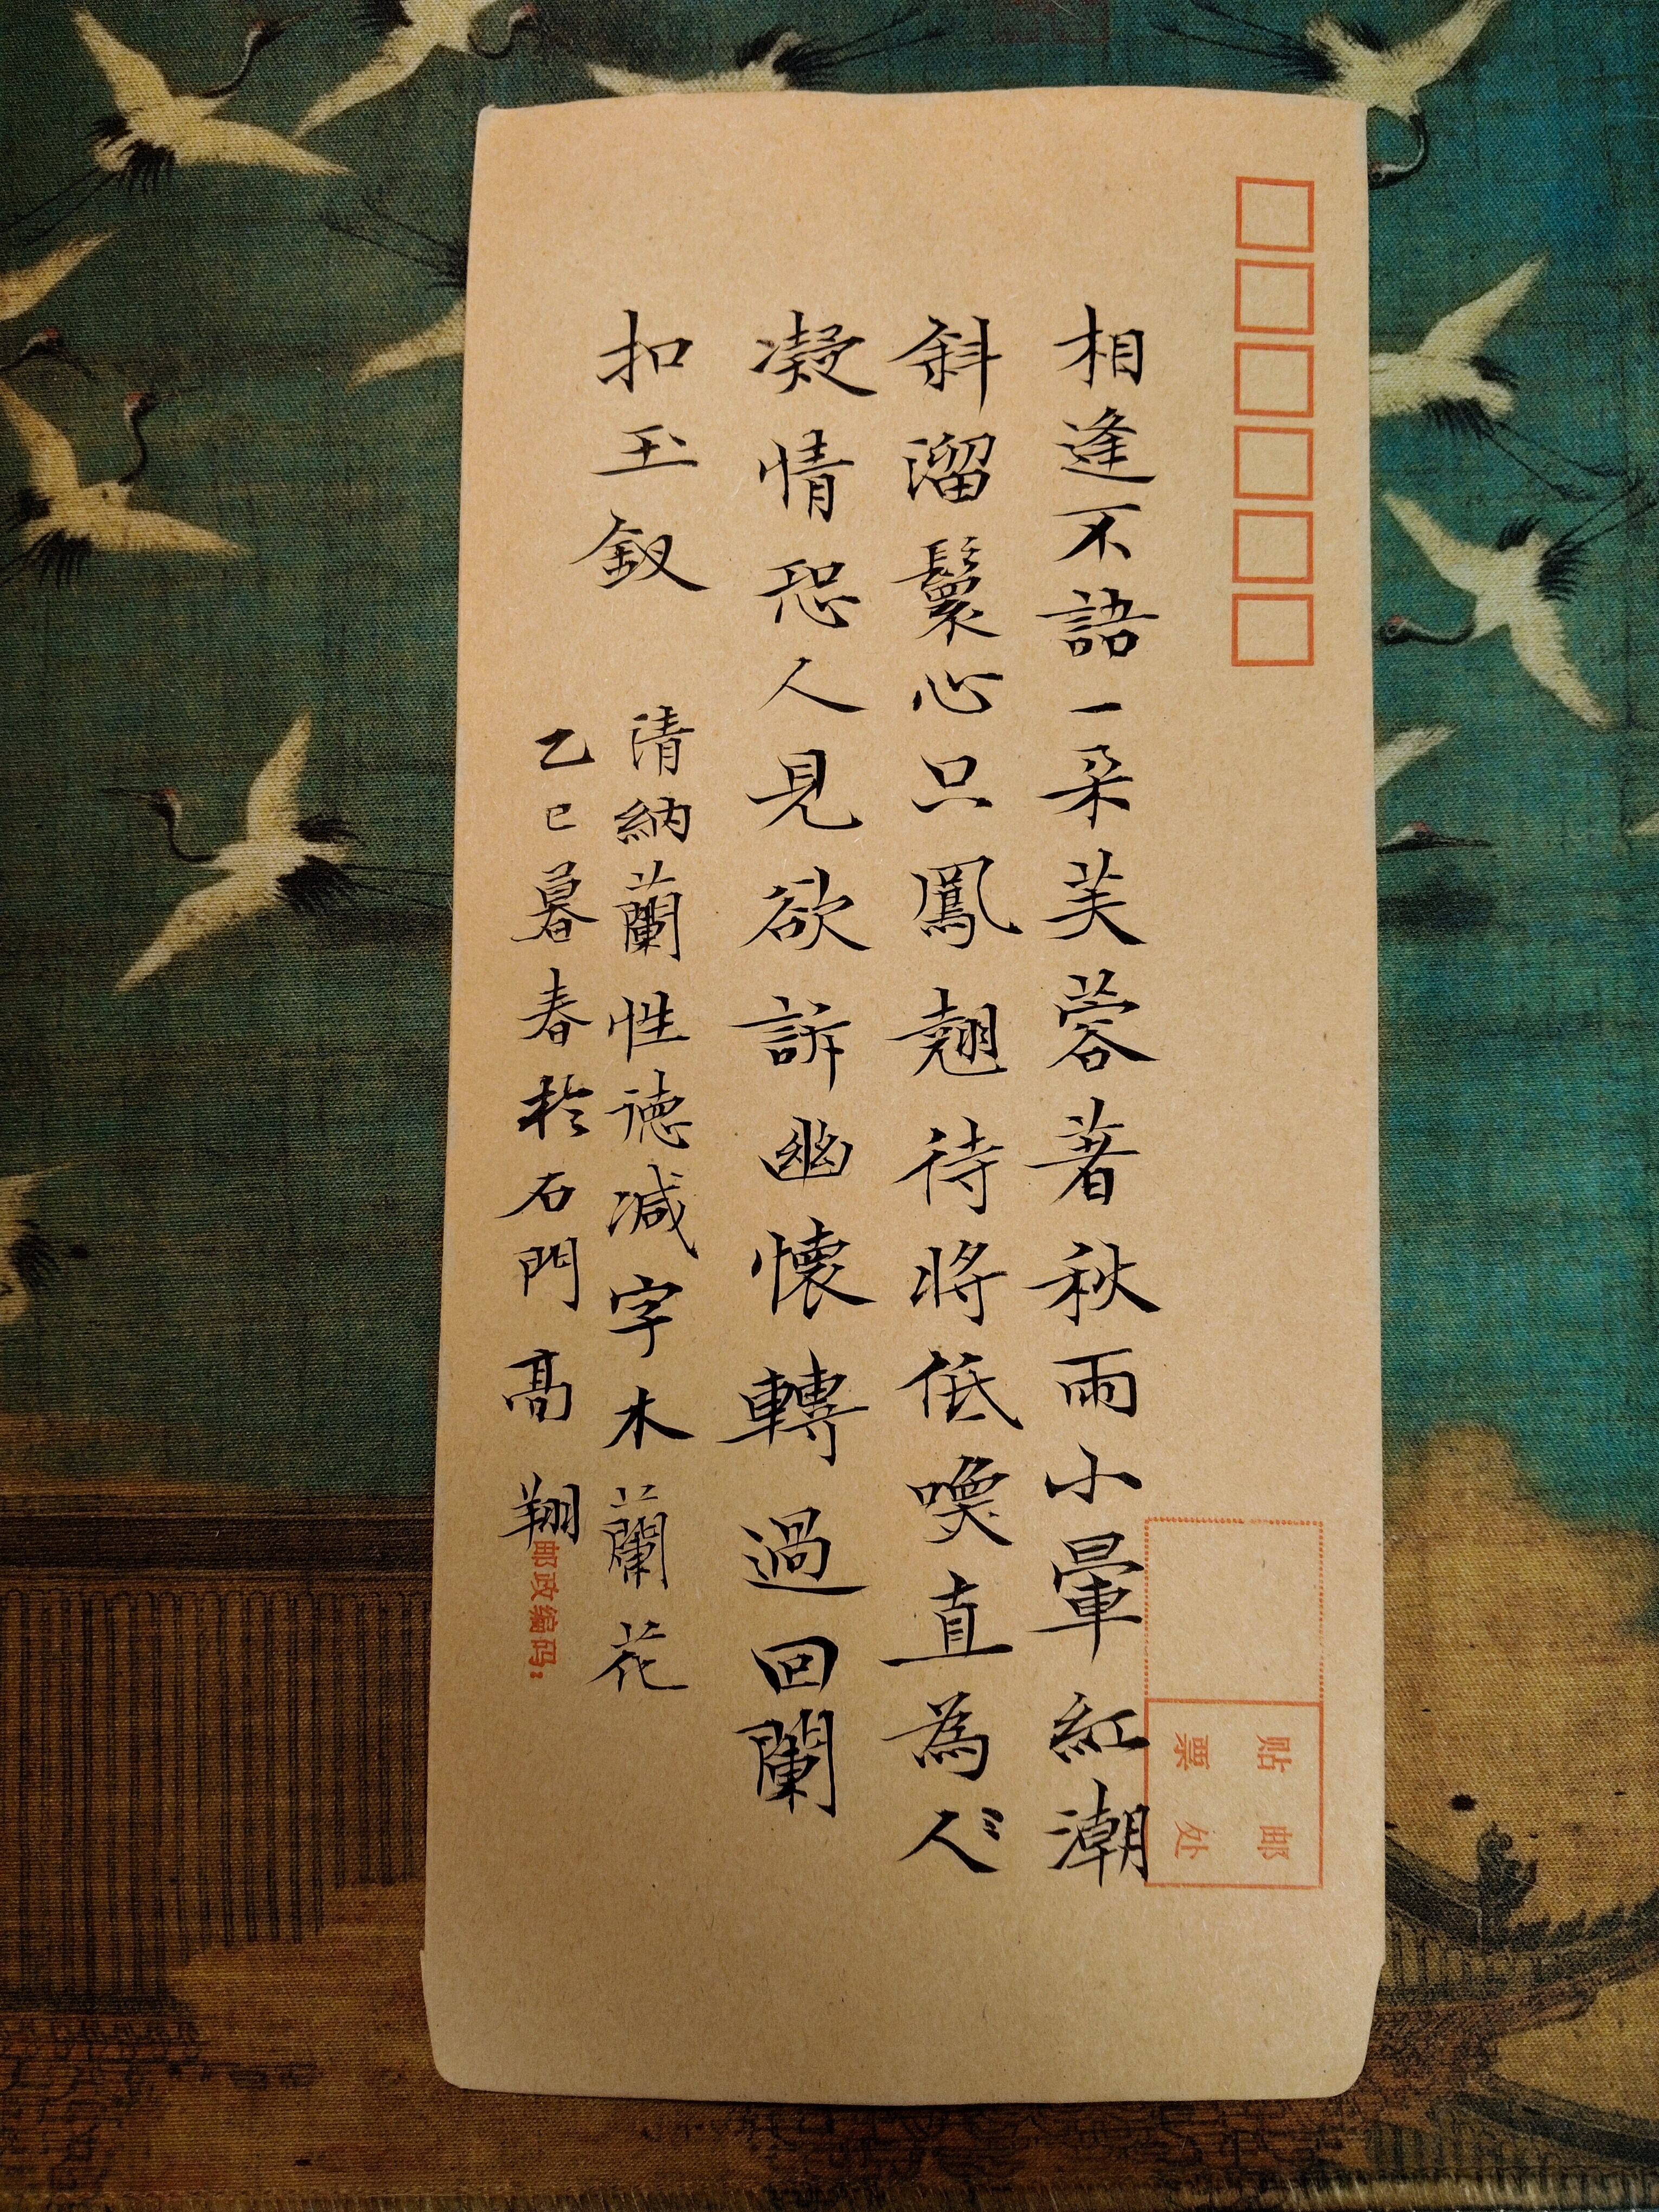 相逢不語一朵芙蓉著秋雨小暈紅潮
斜溜鬟心只鳳翹待將低喚直為人〻
凝情恐人見欲訴幽懷轉過回闌
扣玉釵
清納蘭性德減字木蘭花
乙巳暮春於石門高翔
邮政编码:
贴邮
票处